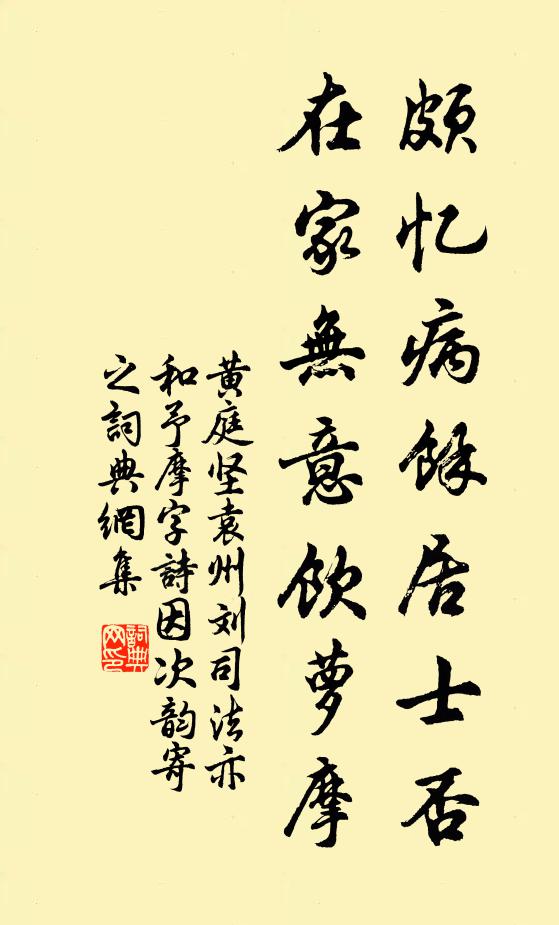 颇忆病馀居士否
在家無意飲萝摩
黄庭坚袁州刘司法亦
和予摩字詩因次韵寄
之詞典網集
詞典网印